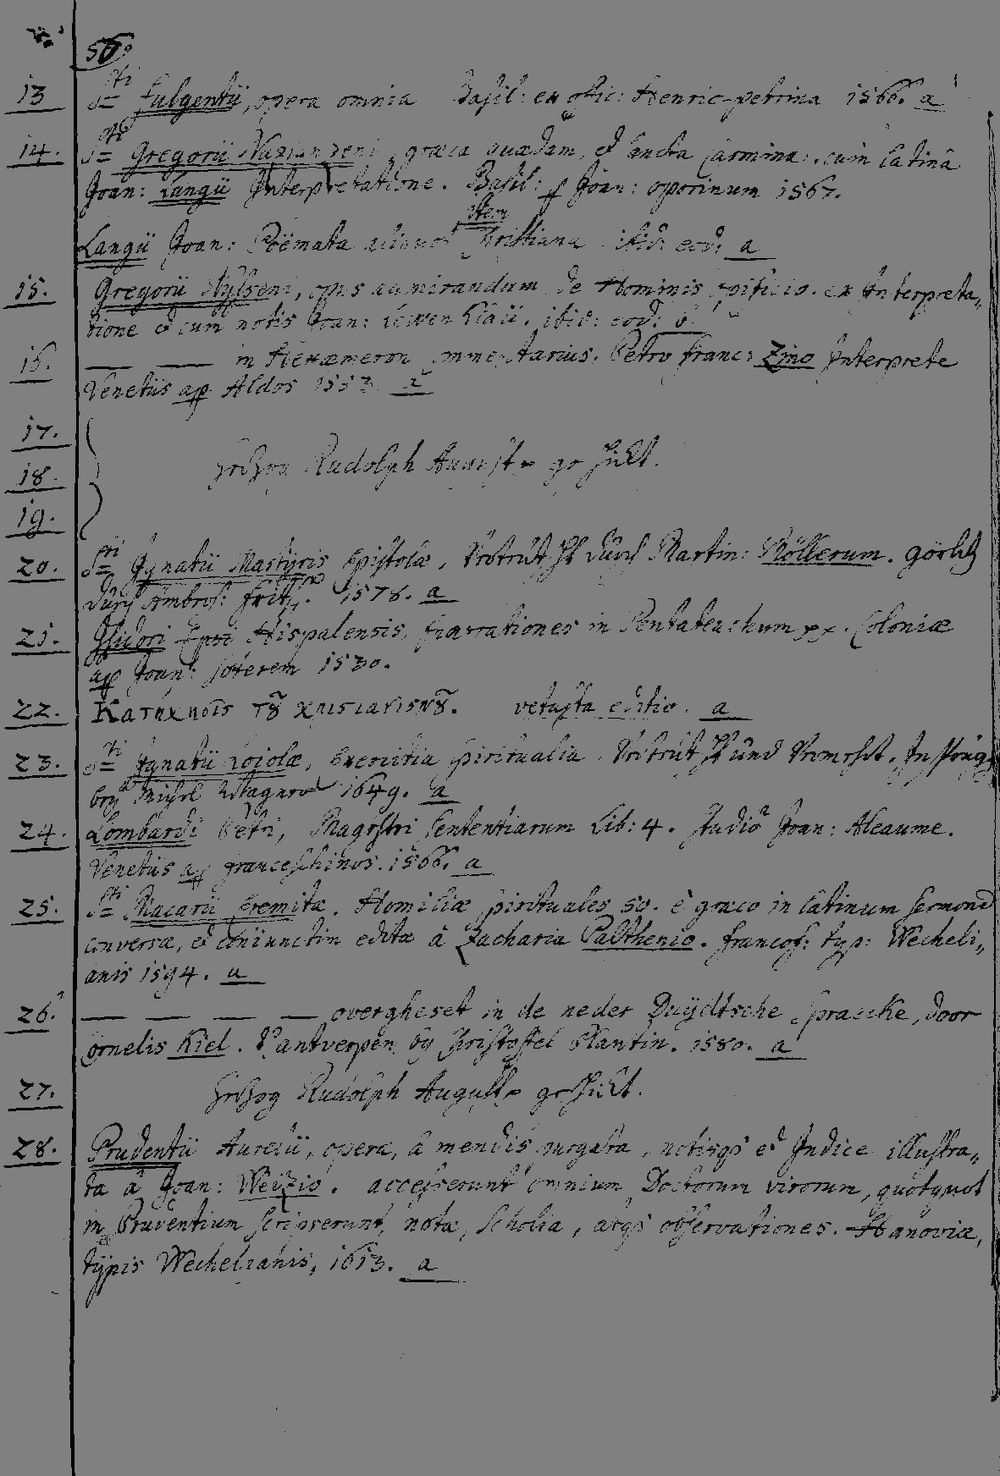 56.
13 Sti Fulgentii, opera omnia Basil: ex offic: Henric-petrina 1566. a
14. Sti Gregorii Nazianzeni, græca quædam, et sancta Carmina, cum latinâ
Joan: Langii Interpretatione. Basil: Joan: oporinum 1567.
Item
Langii Joan: Poëmata aliquot Christiana ibid: eod: a
15. Gregorii Nysseni, opus admirandum de Hominis opificio. ex Interpreta„
tione et cum notis Joan: Lewenklaii. ibid: eod: b
16. — — in Hexæmeron Commentarius. Petro Franc: Zino Interprete
Venetiis ap Aldos 1553. a
17.
18. Hertzog Rudolph August geschickt.
19.
20. Sti Ignatii Martyris Epistolæ, durch Martin: Möllerum. görlitz
durch Ambros: Fritsch. 1578. a
21. Isidori Epi Hispalensis, Enarrationes in Pentateuchum xx. Coloniæ
ap Joan: soterem 1530.
22. Κατηχησις τȣ χριστιανισμȣ. vetusta editio. a
23. Sti Ignatii Loiolæ, Exercitia spiritualia.
bey Michel Wagnern 1649. a
24. Lombardi Petri, Magistri sententiarum Lib: 4. studio Joan: Aleaume.
Venetiis ap franceschinos. 1566. a
25. Sti Macarii Eremitæ. Homiliæ spirituales 50. è græco in latinum sermonem
conversæ, et coniunctim editæ à Zacharia Palthenio. francof: typ: Wecheli„
anis 1594. a
26. — — — — overgheset in de neder Duÿdtsche spraecke, door
Cornelis Kiel. t'antverpen by Christoffel Plantin. 1580. a
27. Hertzog Rudolph August geschickt.
28. Prudentii Aurelii, opera, â mendis purgata, notisqs et Indice illustra„
ta â Joan: Weitzio. accesserunt omnium Doctorum virorum, quotquot
in Prudentium scripserunt, notæ, scholia, atqs observationes. Hanoviæ,
typis Wechelianis, 1613. a